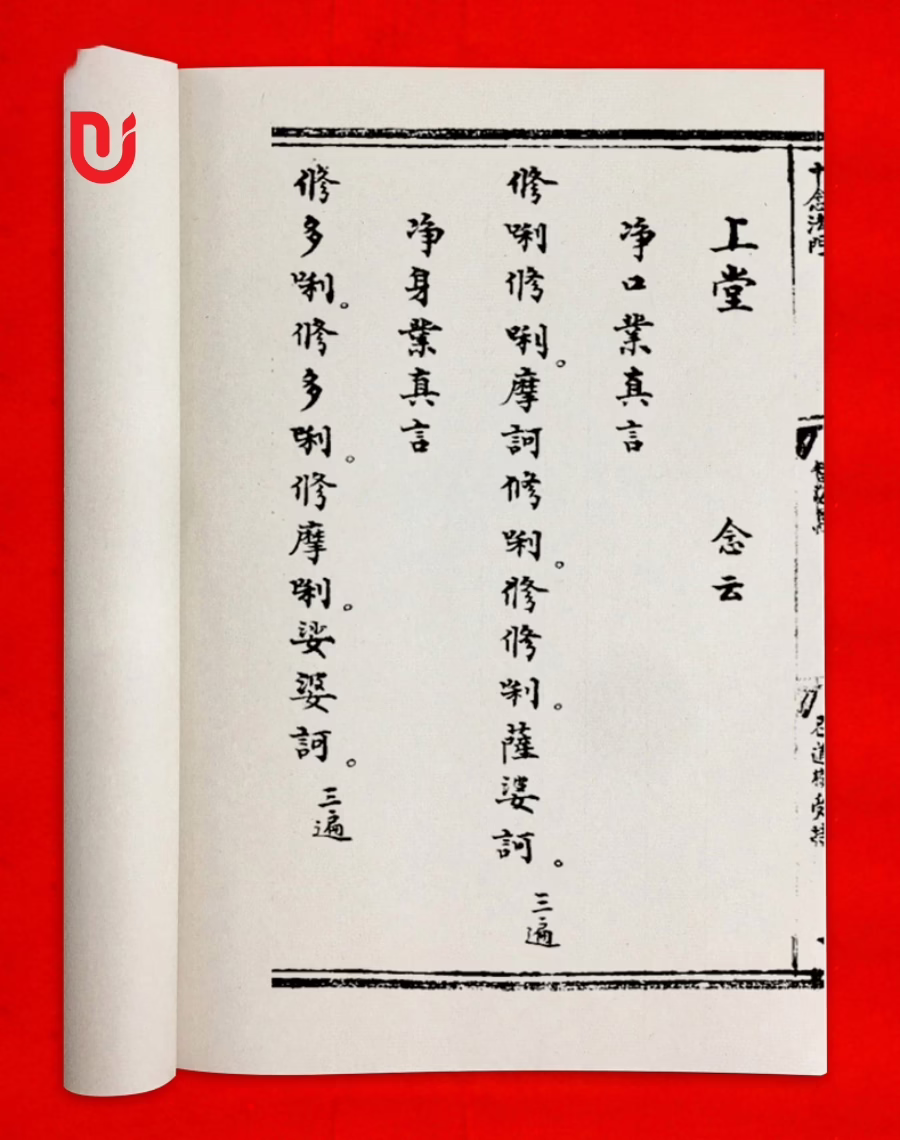 十念法門
上堂　念云
净口業真言
修唎修唎。摩訶修唎。修修唎。薩婆訶。三遍
净身業真言
修多唎。修多唎。修摩唎。娑婆訶。三遍